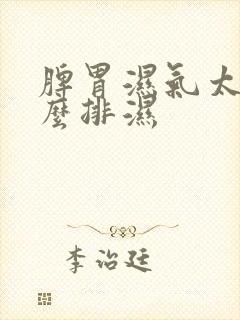 脾胃濕氣太
麼排濕
李治廷